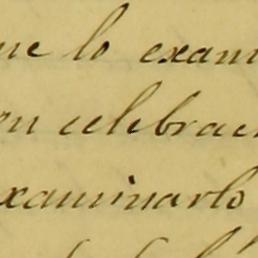 ue lo exam
on celebrac
xaminarlo